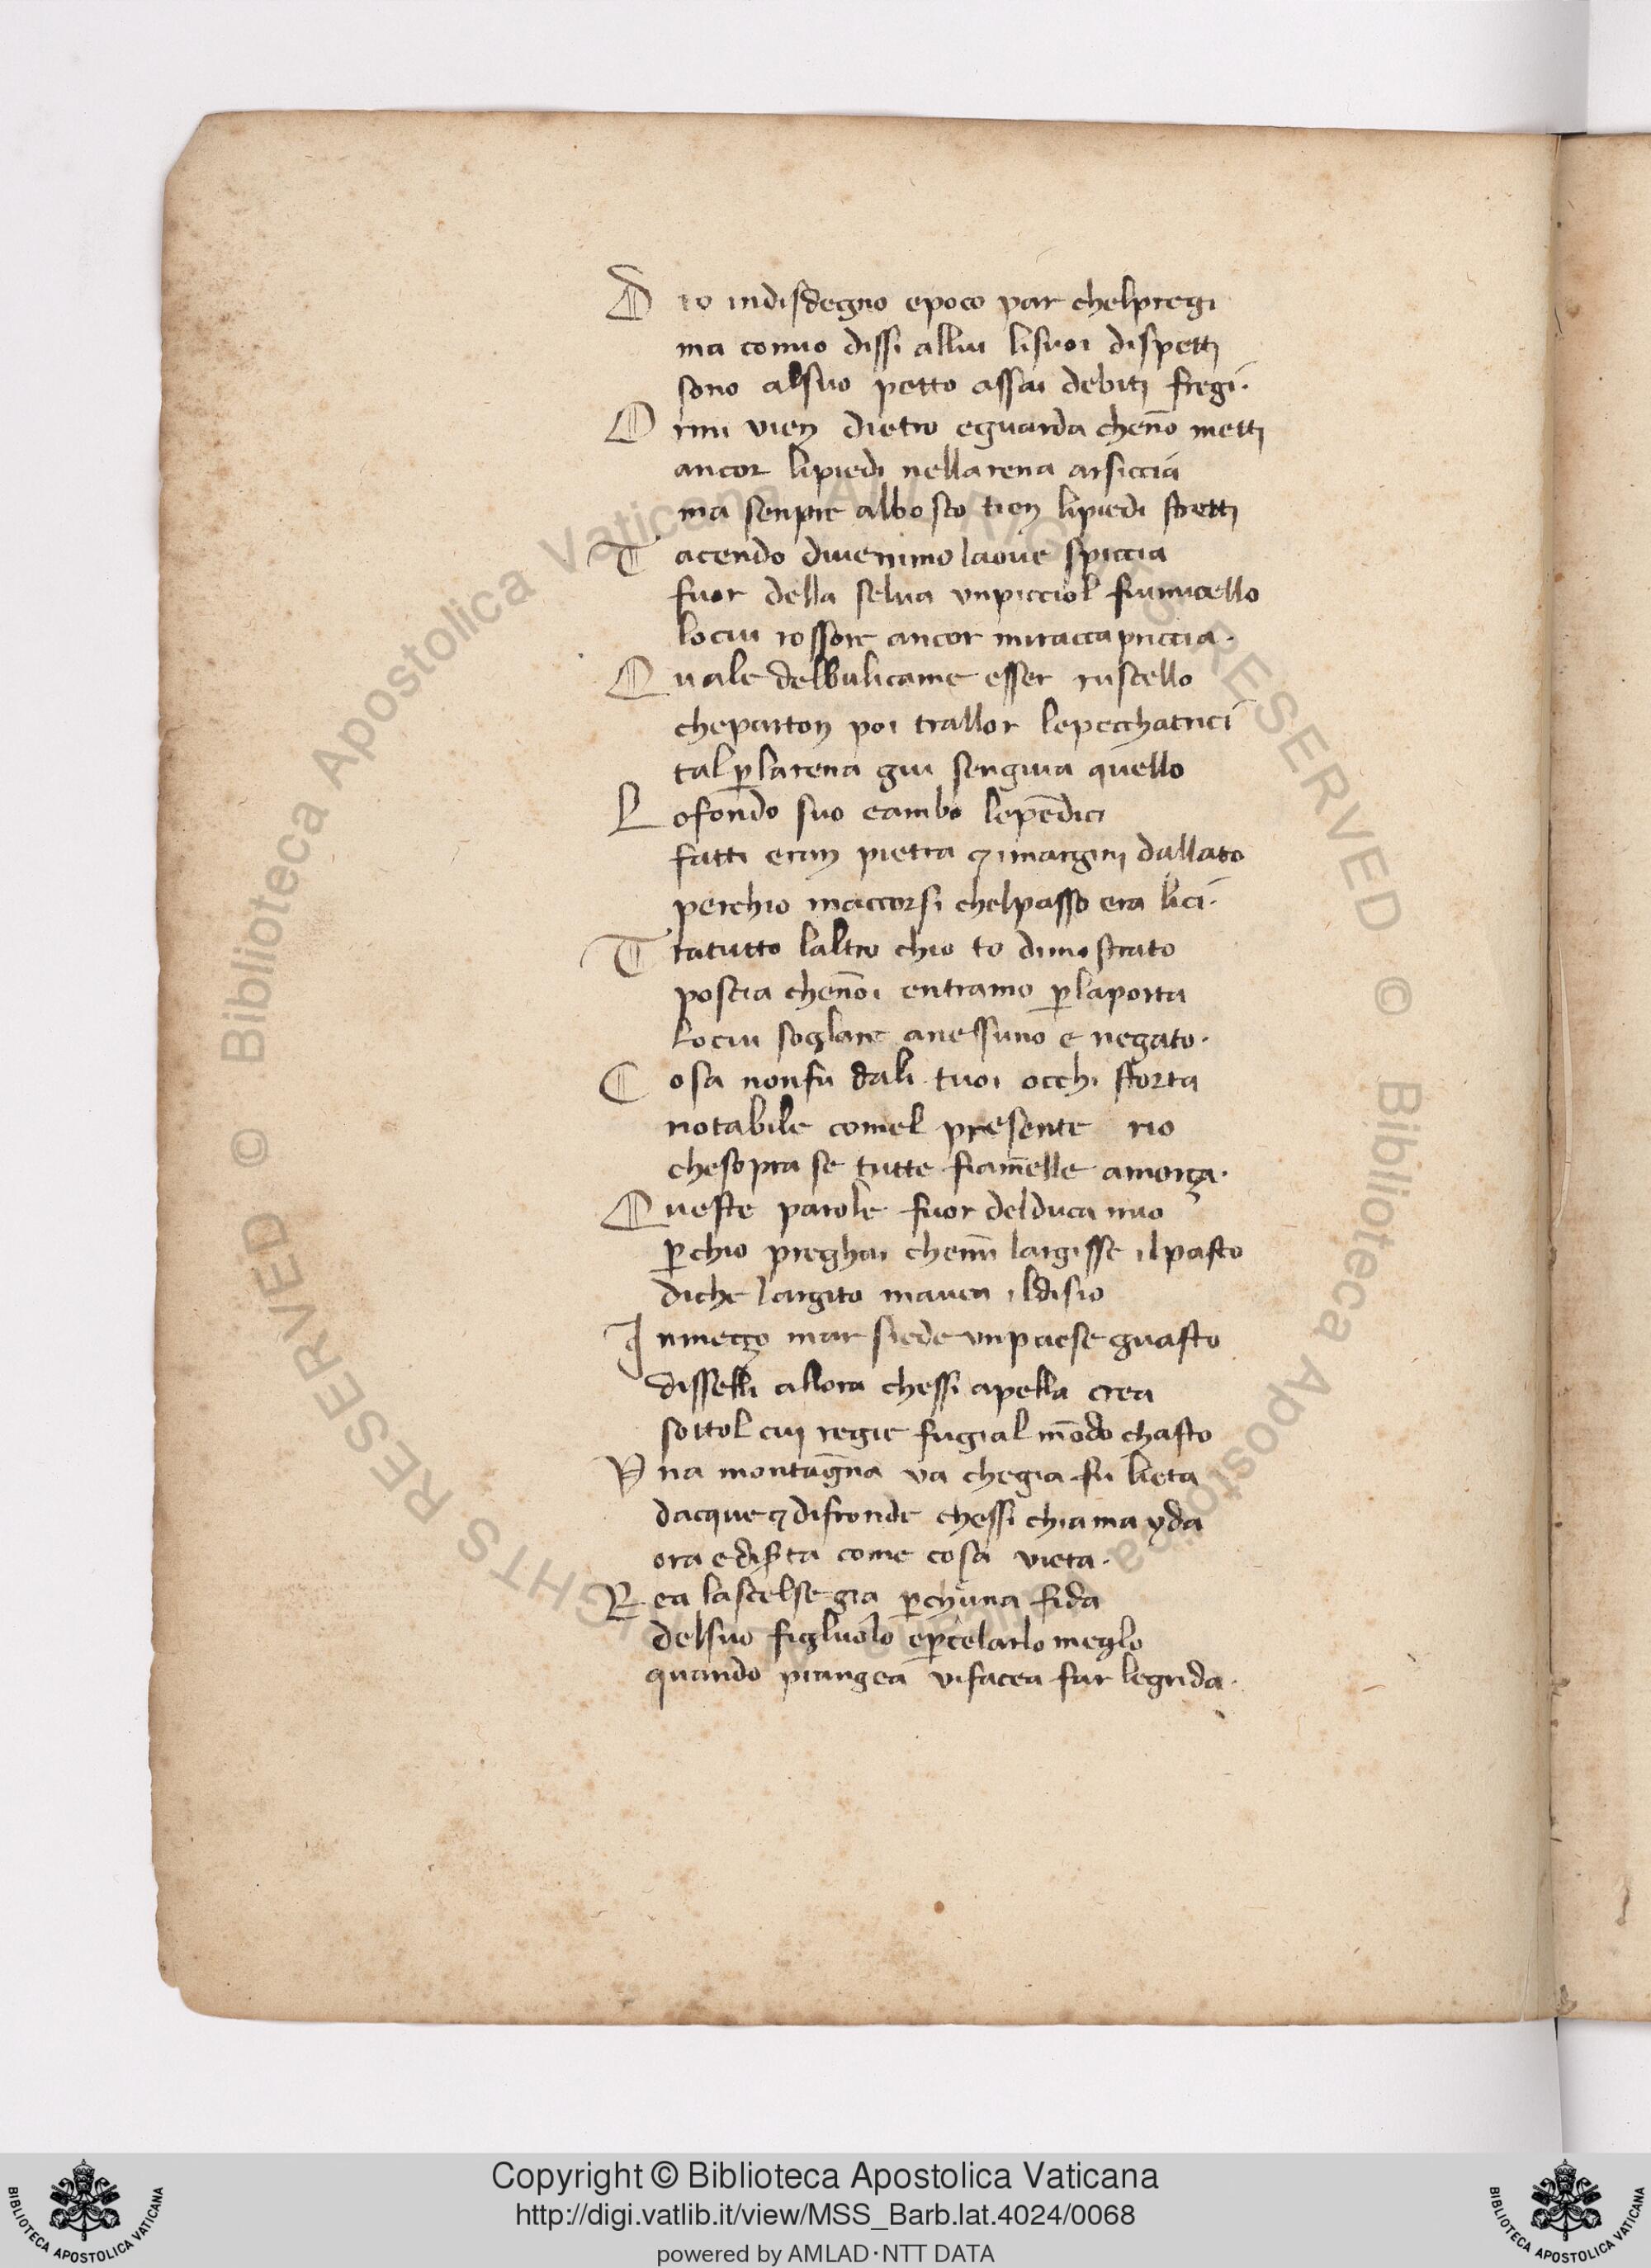 D io indisdegno epoco par chelpregi
ma comio dissi allui lisuoi dispetti
sono alsuo petto assai debiti fregi.
O rmi vien dietro eguarda chen̄o metti
ancor lipiedi nellarena arsiccia
ma senpre albosco tien lipiedi stretti
T acendo diuenimo laoue spiccia
fuor della selua vnpicciol fiumicello
locui rossore ancor miraccapriccia.
Q uale delbulicame esser ruscello
cheparton poi trallor lepecchatrici
tal ꝑlarena giu sengiua quello
L ofondo suo eambo lepēdici
fatti eran pietra ⁊imargini dallato
perchio maccorsi chelpasso era lici.
T ratutto laltro chio to dimostrato
poscia chen̄oi entramo ꝑlaporta
locui soglare anessuno e negato.
C osa nonfu dali tuoi occhi scorta
notabile comel presente rio
chesopra se tutte fiam̄elle amorça.
Q ueste parole fuor delduca mio
ꝑchio preghai chem̄i largisse ilpasto
diche largito mauea ildisio
I nmeçço mar siede vnpaese guasto
disselli allora chessi apella crea
sottol cui regie fugial mōdo chasto
V na montaḡna va chegia fu lieta
dacque ⁊difronde chessi chiama yda
ora ediserta come cosa vieta.
R ea lascelse gia ꝑchuna fida
delsuo figluolo eꝑcelarlo meglo
quando piangea vifacea far legrida.
Copyright © Biblioteca Apostolica Vaticana
http://digi.vatlib.it/view/MSS_Barb.lat.4024/0068
powered by AMLAD·NTT DATA
BIBLIOTECA APOSTOLICA VATICANA
BIBLIOTECA APOSTOLICA VATICANA